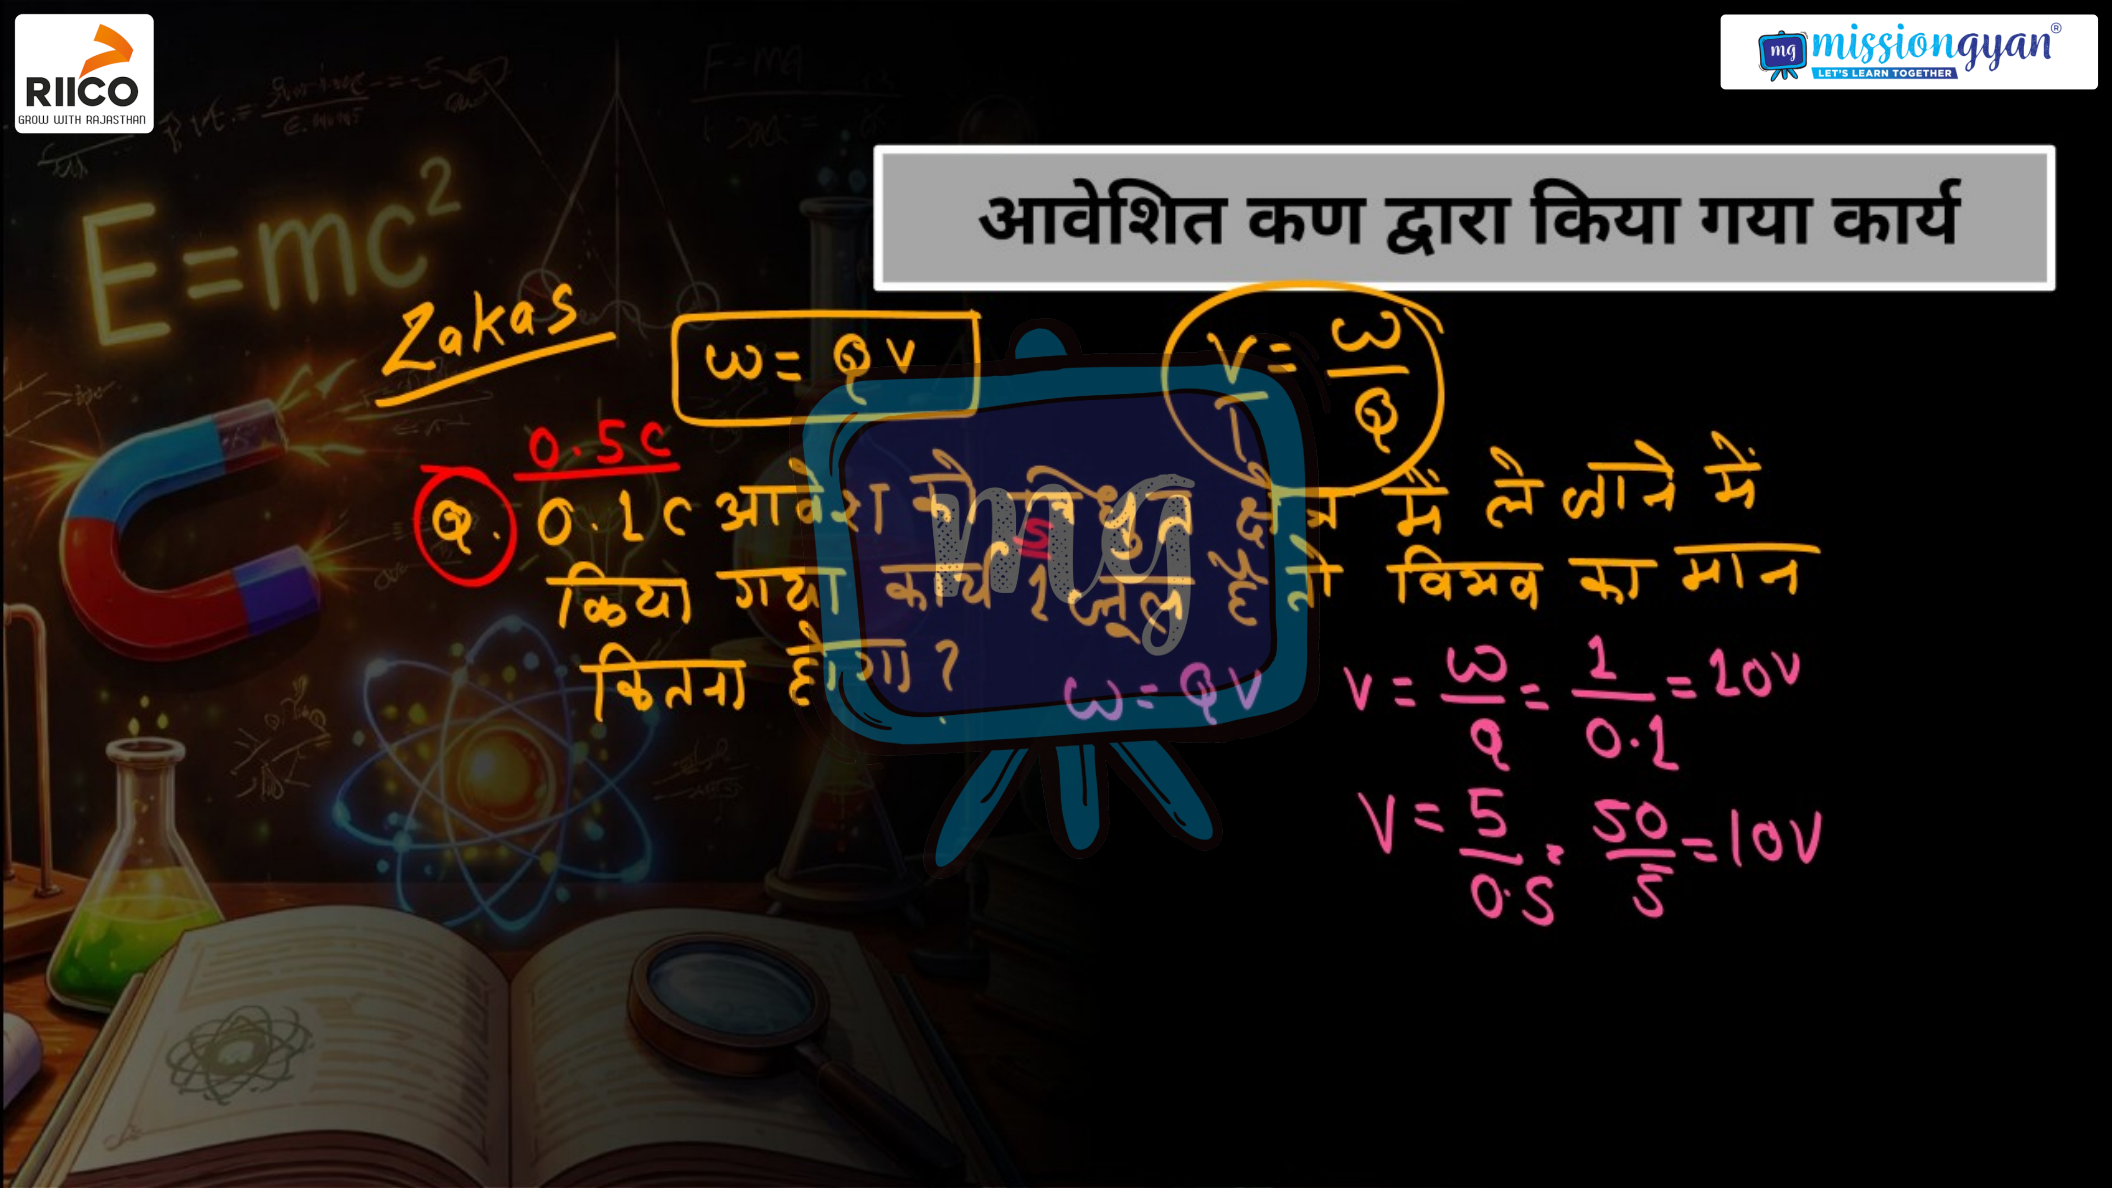 RIICO
GROW WITH RAJASTHAN
mg missiongyan®
LET'S LEARN TOGETHER
E=mc²
आवेशित कण द्वारा किया गया कार्य
Zakas
W = QV
V = W/Q
0.5C
Q. 0.1C आवेश को विधुत क्षेत्र में ले जाने में
5
किया गया कार्य 1 जूल है तो विभव का मान
कितना होगा?
mg
W = QV
V = W/Q = 1/0.1 = 10V
V = 5/0.5 = 50/5 = 10V